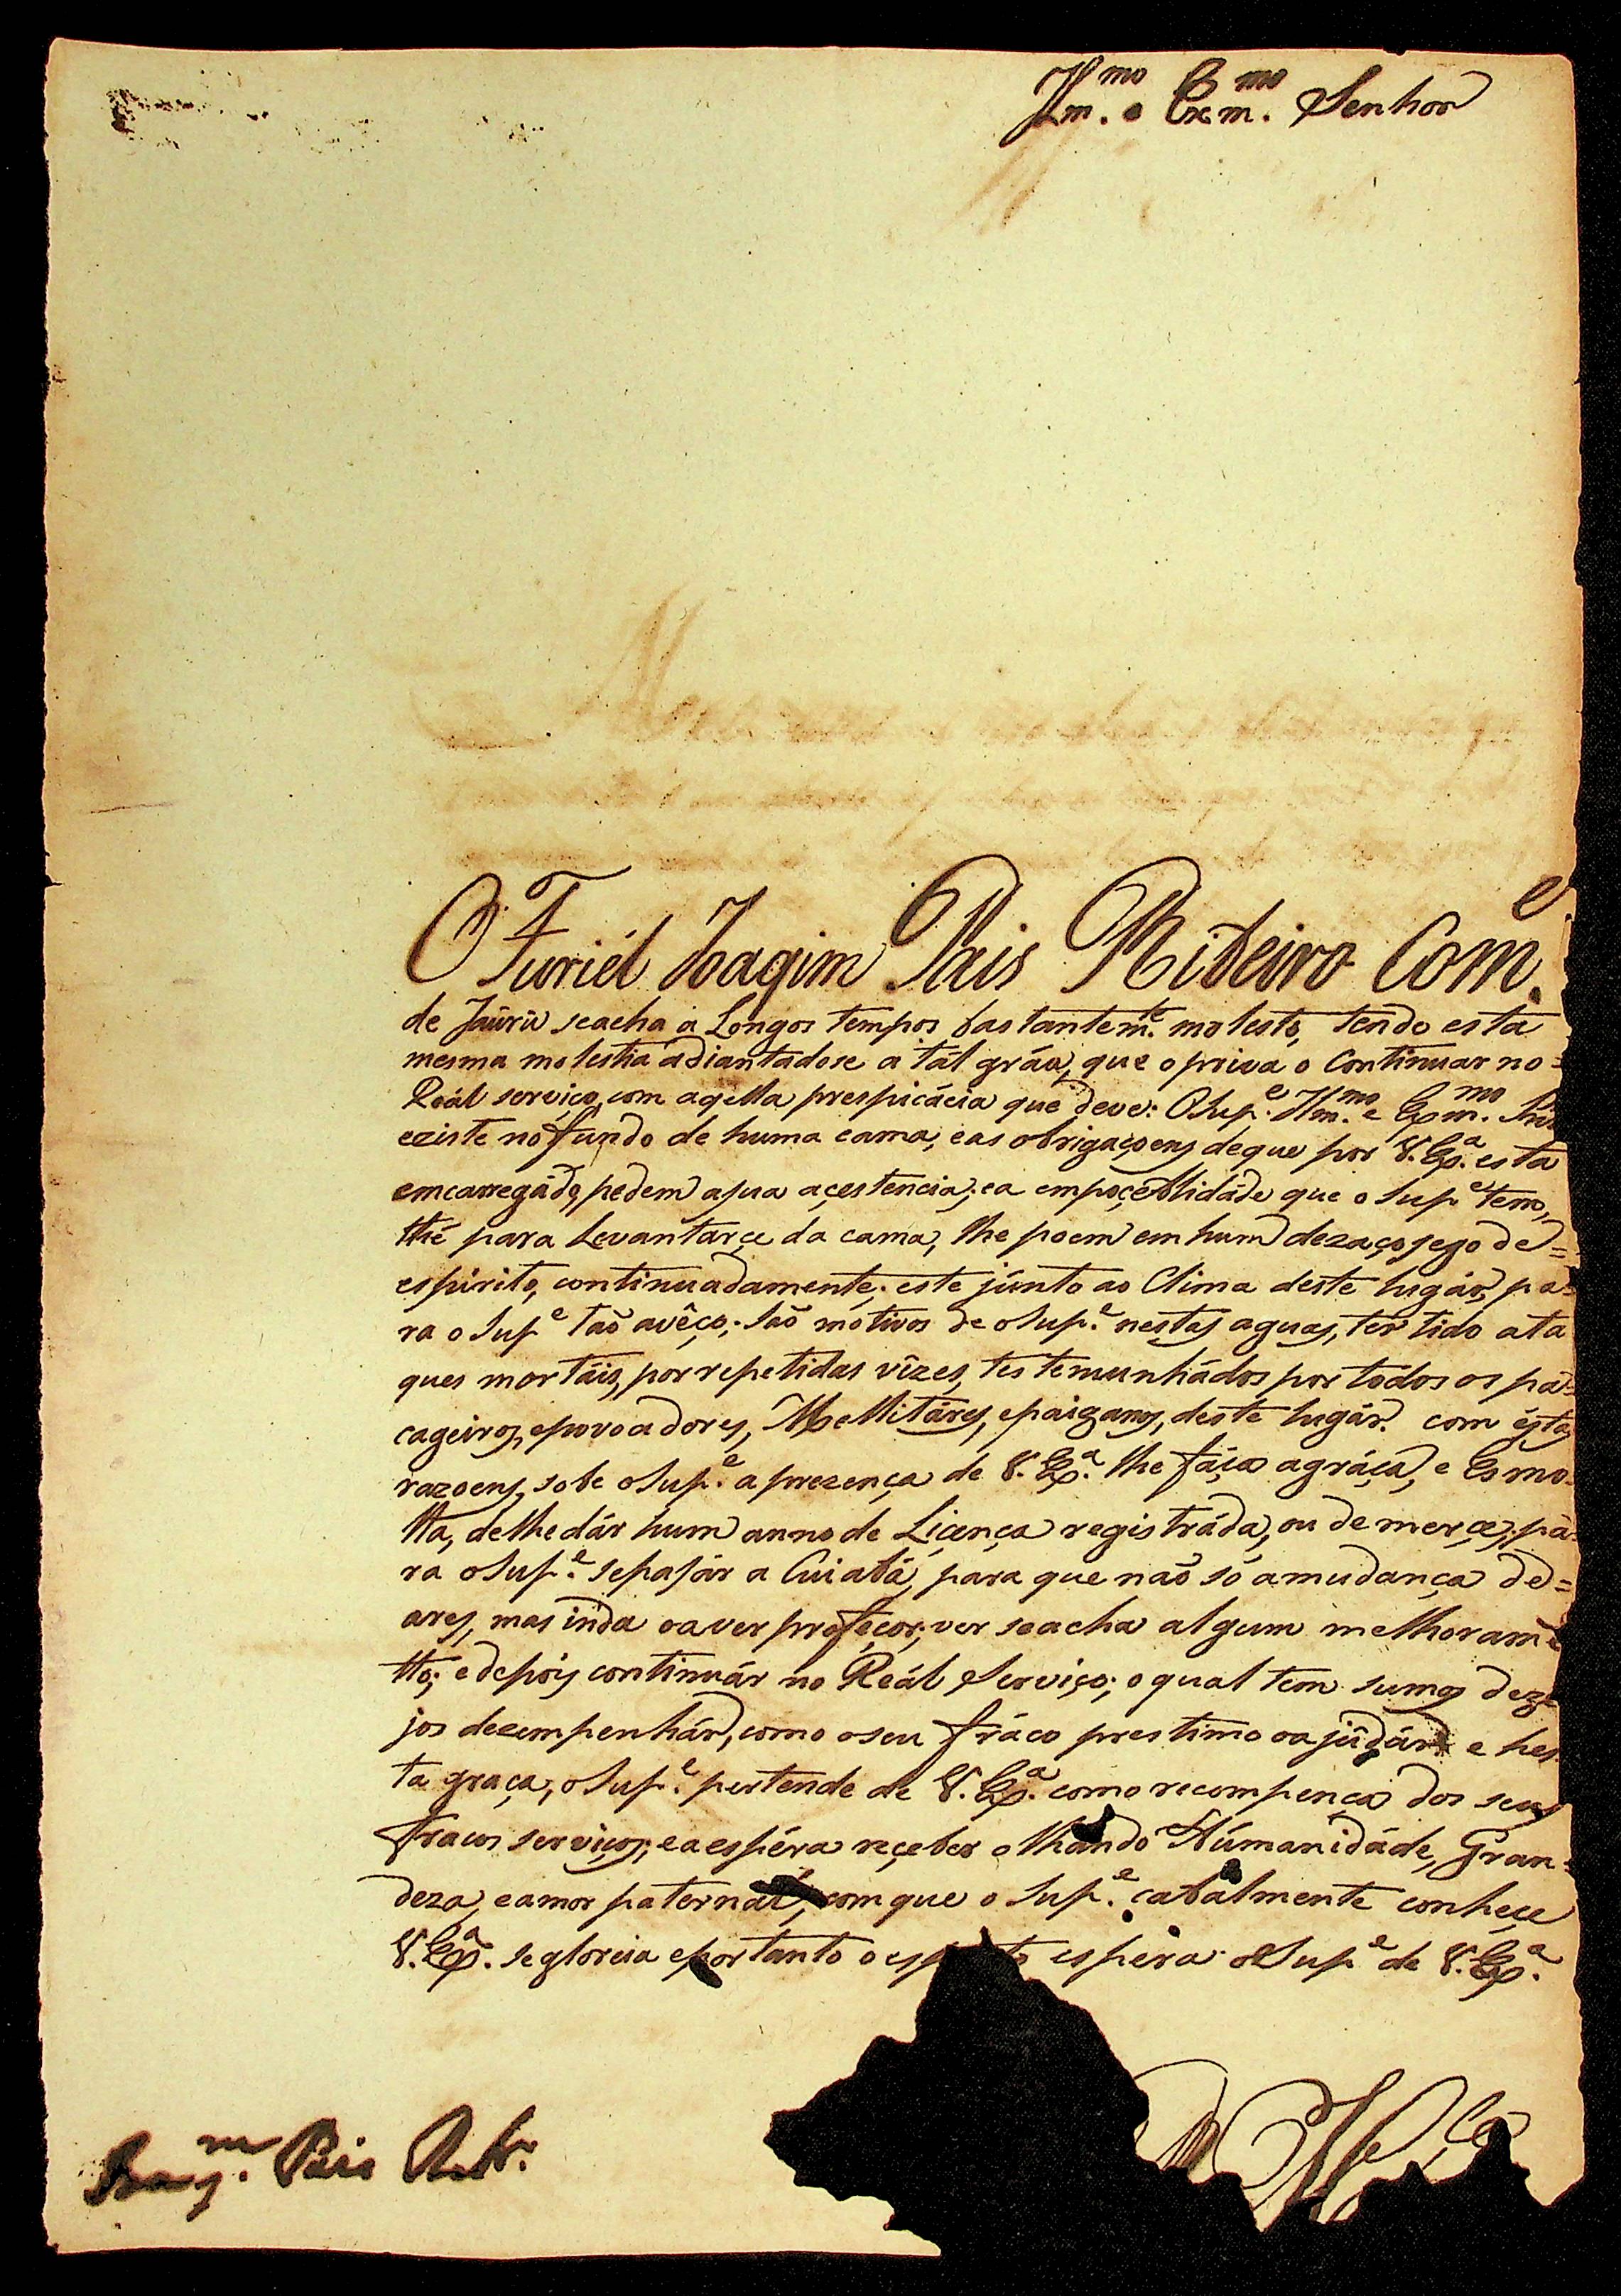 Illm.mo e Exm.mo Senhor
O Furiél Joaqim Pais Ribeiro Com.e
de Jaúrú seacha a Longos tempos bastantem.e molesto, tendo esta
mesma molestia adiantadose a tál gráo, que o priva o Continuar no=
Reál serviço, com aqella prespicácia que deve: O Sup.e Illm.mo e Exm.mo Snr
eziste no fundo de huma cama, eas obrigaçoens deque por V. Ex.a esta
emcarregádo, pedem asua açestencia; ea empoçebllidáde que o Sup.e tem,
thé para Levantarçe da cama, lhe poem em hum dezaçosego de=
espirito, continuadamente; este júnto ao Clima deste lugár, pa=
ra o Sup.e taõ avêço; saõ motivos de o Sup.e nestas aguas, ter tido ata
ques mortáis, por repetidas vîzes, testemunhádos por todos os pa=
cageiros, epovoadores, Mellitáres, epaizanos, deste lugár. com éstas
razoens, sobe o Sup.e a prezença de V. Ex.a lhe fáça agráça, e Esmo=
lla, delhedár hum anno de Liçença registráda, ou de merçe, pa=
ra o Sup.e sepasár a Cuiabá, para que naõ só amudança de=
ares, mas inda oaver profeçor; ver seacha algum melhoram
tto; edepois continuár no Reál Serviço; o qual tem sumos deze
jos dezempenhár, como oseu fráco prestimo oajúdár e hes
ta graça, o Sup.e pertende de V. Ex.a como recompença dos seus
fracos serviços; eaespéra reçeber olhando Húmanidáde, Gran=
deza, eamor paternal, comque o Sup.e cabalmente conheçe
V. Ex.a segloreia eportanto o espera o Sup.e de V. Ex.a
Pais Rib.ro